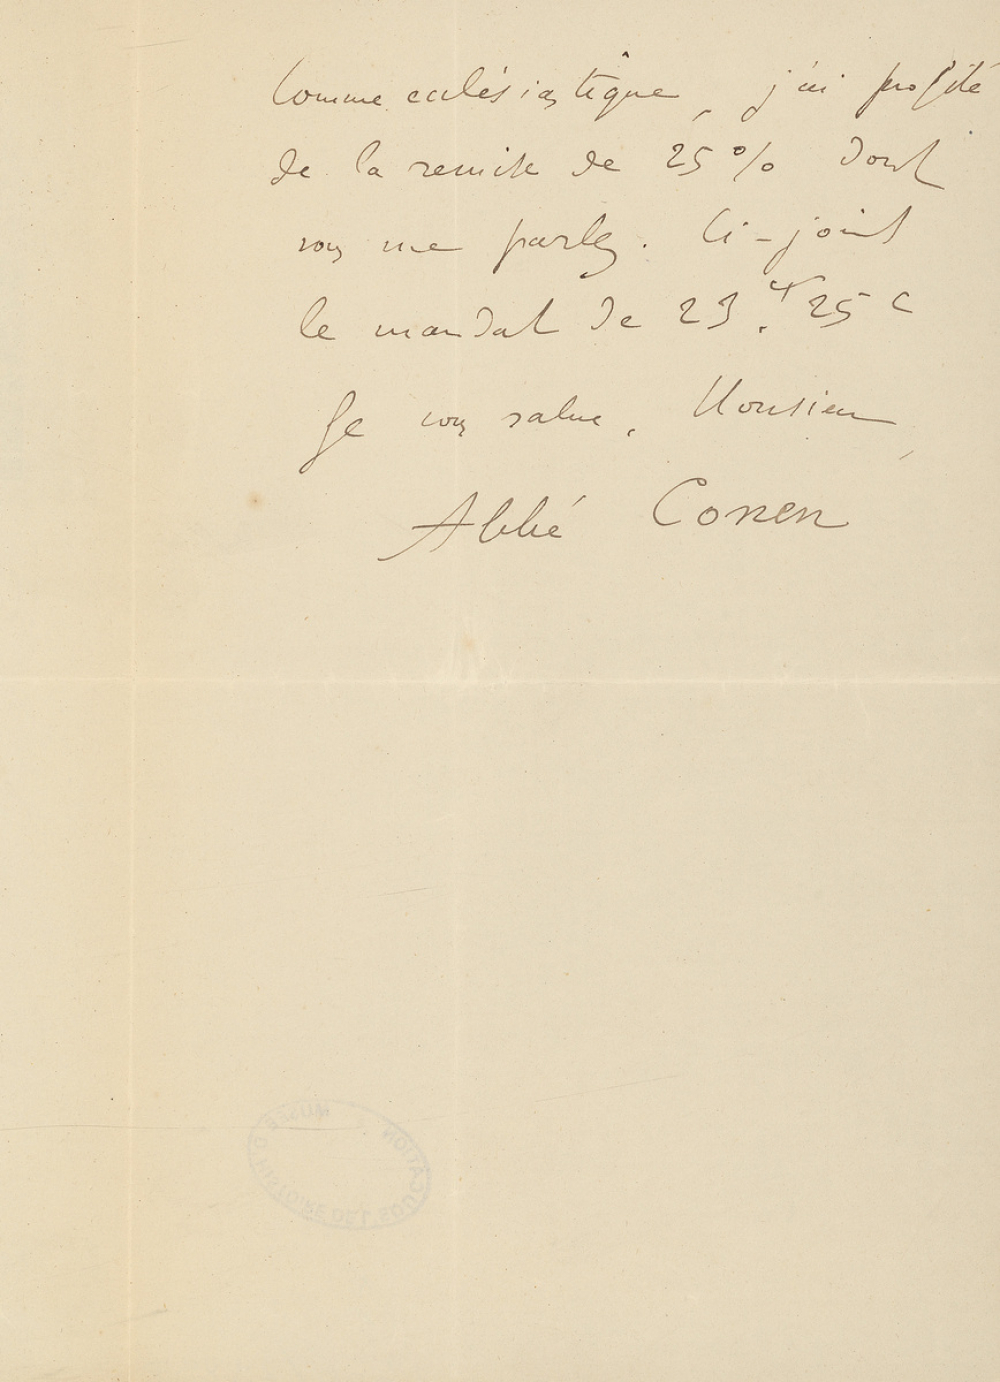 Comme ecclésiastique, j'ai profité
de la remise de 25 % dont
vous me parlez. Ci-joint
le mandat de 23.f 25 c
Je vous salue, Monsieur,
Abbé Conen
MUSÉE D'HISTOIRE DE L'EDUCATION